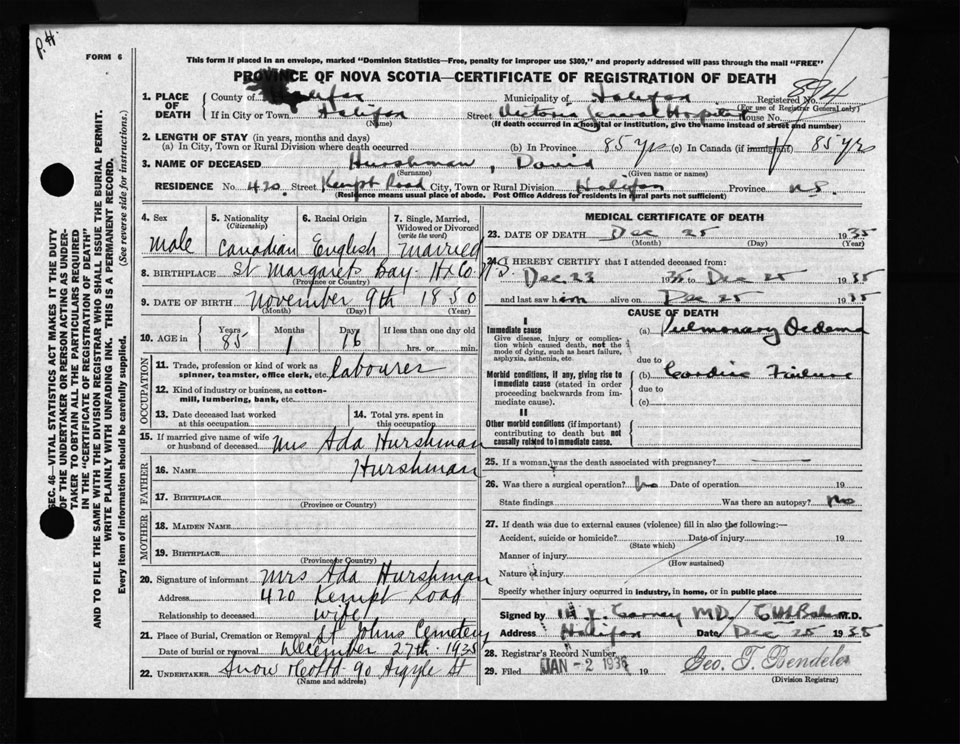 P. H.
FORM 6
This form if placed in an envelope, marked "Dominion Statistics—Free, penalty for improper use $300," and properly addressed will pass through the mail "FREE"
PROVINCE OF NOVA SCOTIA—CERTIFICATE OF REGISTRATION OF DEATH
894
1. PLACE OF DEATH
County of Halifax Municipality of Halifax Registered No.
(For use of Registrar General only)
If in City or Town Halifax Street Victoria General Hospital House No.
(Name) (If death occurred in a hospital or institution, give the name instead of street and number)
2. LENGTH OF STAY (in years, months and days)
(a) In City, Town or Rural Division where death occurred (b) In Province 85 yrs (c) In Canada (if immigrant) 85 yrs
3. NAME OF DECEASED Hurshman, David
(Surname) (Given name or names)
RESIDENCE No. 420 Street Kempt Road City, Town or Rural Division Halifax Province N.S.
(Residence means usual place of abode. Post Office Address for residents in rural parts not sufficient)
4. Sex Male
5. Nationality (Citizenship) Canadian
6. Racial Origin English
7. Single, Married, Widowed or Divorced (write the word) Married
8. BIRTHPLACE St Margarets Bay Hx Co N.S.
(Province or Country)
9. DATE OF BIRTH November 9th 1850
(Month) (Day) (Year)
10. AGE in Years 85 Months 1 Days 16 If less than one day old hrs. or min.
OCCUPATION
11. Trade, profession or kind of work as spinner, teamster, office clerk, etc. labourer
12. Kind of industry or business, as cotton-mill, lumbering, bank, etc.
13. Date deceased last worked at this occupation
14. Total yrs. spent in this occupation
15. If married give name of wife or husband of deceased Mrs Ada Hurshman
FATHER
16. NAME Hurshman
17. BIRTHPLACE
(Province or Country)
MOTHER
18. MAIDEN NAME
19. BIRTHPLACE
(Province or Country)
20. Signature of informant Mrs Ada Hurshman
Address 420 Kempt Road
Relationship to deceased wife
21. Place of Burial, Cremation or Removal St Johns Cemetery
Date of burial or removal December 27th 1935
22. UNDERTAKER Snow 90 Argyle St
(Name and address)
MEDICAL CERTIFICATE OF DEATH
23. DATE OF DEATH Dec 25 1935
(Month) (Day) (Year)
24. I HEREBY CERTIFY that I attended deceased from:
Dec. 23 1935 to Dec 25 1935
and last saw him alive on Dec 25 1935
CAUSE OF DEATH
I
Immediate cause
Give disease, injury or complication which caused death, not the mode of dying, such as heart failure, asphyxia, asthenia, etc.
(a) Pulmonary Oedema
due to
Morbid conditions, if any, giving rise to immediate cause (stated in order proceeding backwards from immediate cause).
(b) Cardiac Failure
due to
(c)
II
Other morbid conditions (if important) contributing to death but not causally related to immediate cause.
25. If a woman, was the death associated with pregnancy?
26. Was there a surgical operation? No Date of operation 19
State findings Was there an autopsy? No
27. If death was due to external causes (violence) fill in also the following:—
Accident, suicide or homicide? Date of injury 19
(State which)
Manner of injury
(How sustained)
Nature of injury
Specify whether injury occurred in industry, in home, or in public place
Signed by M.D. M.D.
Address Halifax Date Dec 25 1935
28. Registrar's Record Number
29. Filed JAN - 2 1936 19 Geo. T. Bendeler
(Division Registrar)
SEC. 46—VITAL STATISTICS ACT MAKES IT THE DUTY
OF THE UNDERTAKER OR PERSON ACTING AS UNDER-
TAKER TO OBTAIN ALL THE PARTICULARS REQUIRED
IN THE "CERTIFICATE OF REGISTRATION OF DEATH"
AND TO FILE THE SAME WITH THE DIVISION REGISTRAR WHO SHALL ISSUE THE BURIAL PERMIT.
WRITE PLAINLY WITH UNFADING INK. THIS IS A PERMANENT RECORD.
Every item of information should be carefully supplied. (See reverse side for instructions.)